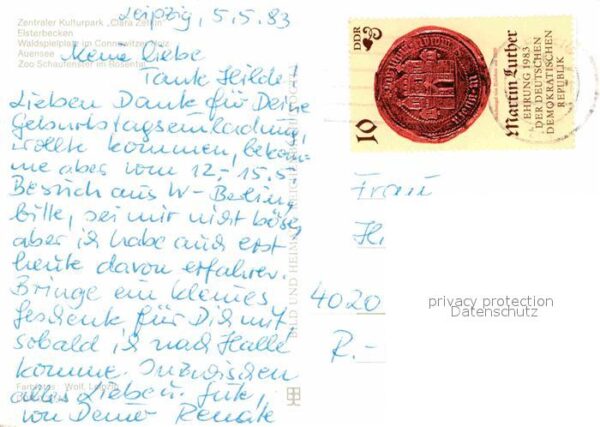 Leipzig, 5.5.83
Zentraler Kulturpark „Clara Zetkin
Elsterbecken
Waldspielplatz im Connewitzer Holz
Auensee
Zoo Schaufenster im Rosental
Meine liebe
Tante Hilde!
Lieben Dank für Deine
Geburtstagseinladung,
wollte kommen, bekom-
me aber vom 12.-15.5.
Besuch aus W-Berlin,
bitte, sei mir nicht böse,
aber ich habe auch erst
heute davon erfahren.
Bringe ein kleines
Geschenk für Dich mit
sobald ich nach Halle
komme. Inzwischen
alles Liebe u. Gute,
von Deiner Renate
Farbfotos: Wolf, Leipzig
BILD UND HEIMAT
DDR
10
Martin Luther
EHRUNG 1983
DER DEUTSCHEN
DEMOKRATISCHEN
REPUBLIK
Frau
H
4020
R.-
privacy protection
Datenschutz